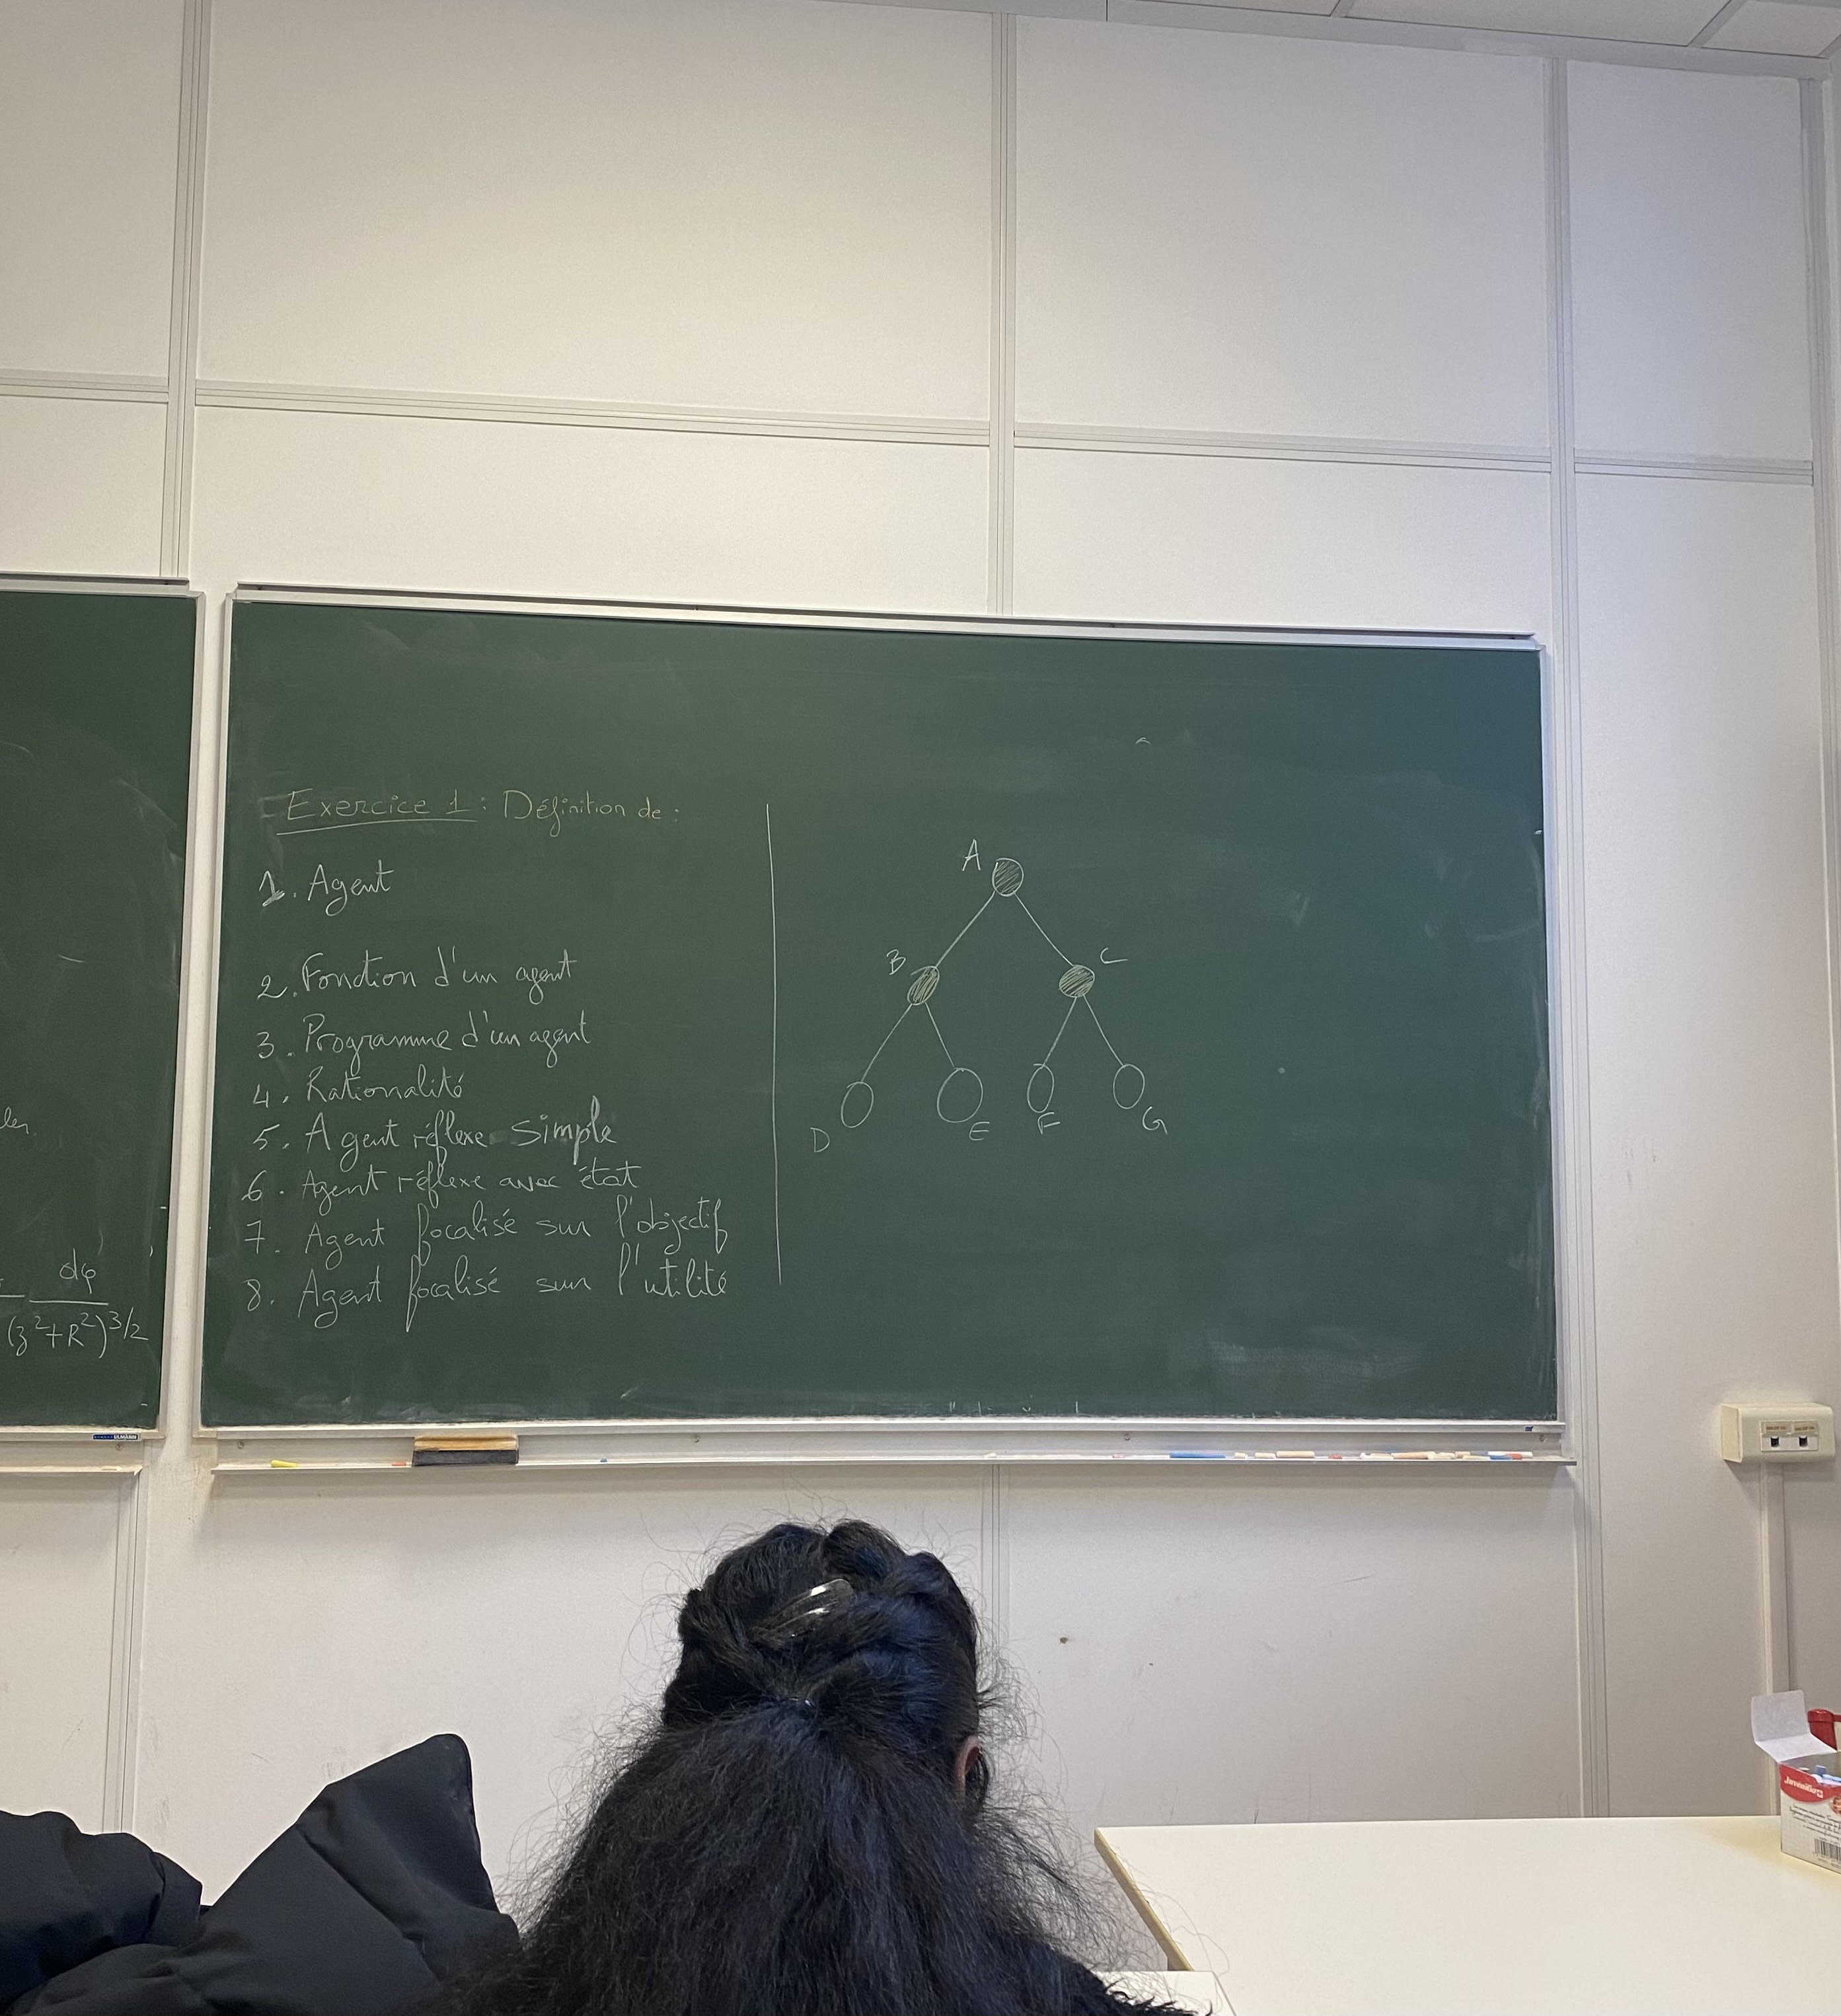 ler
dφ
(z²+R²)^3/2
Exercice 1 : Définition de :
1. Agent
2. Fonction d'un agent
3. Programme d'un agent
4. Rationalité
5. Agent réflexe simple
6. Agent réflexe avec état
7. Agent focalisé sur l'objectif
8. Agent focalisé sur l'utilité
A
B C
D E F G
ULMANN
Juvenilia